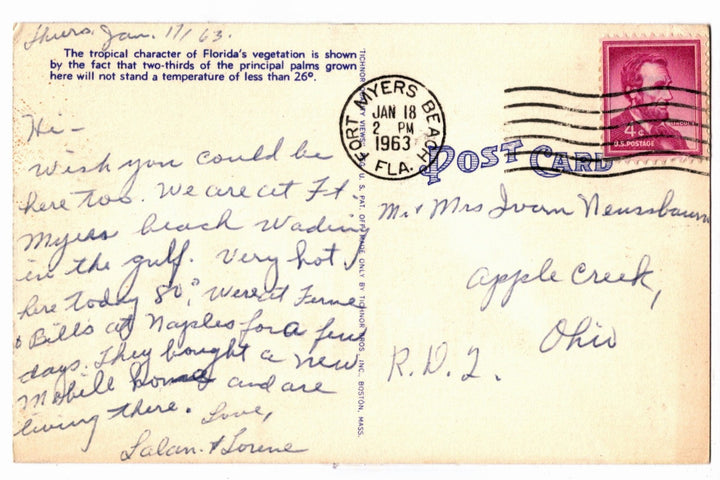 Thurs. Jan. 17/63.
The tropical character of Florida's vegetation is shown
by the fact that two-thirds of the principal palms grown
here will not stand a temperature of less than 26º.
Hi-
Wish you could be
here too. We are at Ft.
Myers beach Wading
in the gulf. Very hot
here today 80°. Were at Ferne
& Bills at Naples for a few
days. They bought a new
Mobile home and are
living there. Love,
& Lorene
TICHNOR QUALITY VIEWS
U. S. PAT. OFF. MADE ONLY BY TICHNOR BROS., INC., BOSTON, MASS.
FORT MYERS BEACH
JAN 18
2 PM
1963
FLA.
POST CARD
LINCOLN
4¢
U.S. POSTAGE
Mr & Mrs Ivan Neussbaum
Apple Creek,
Ohio
R.D.2.